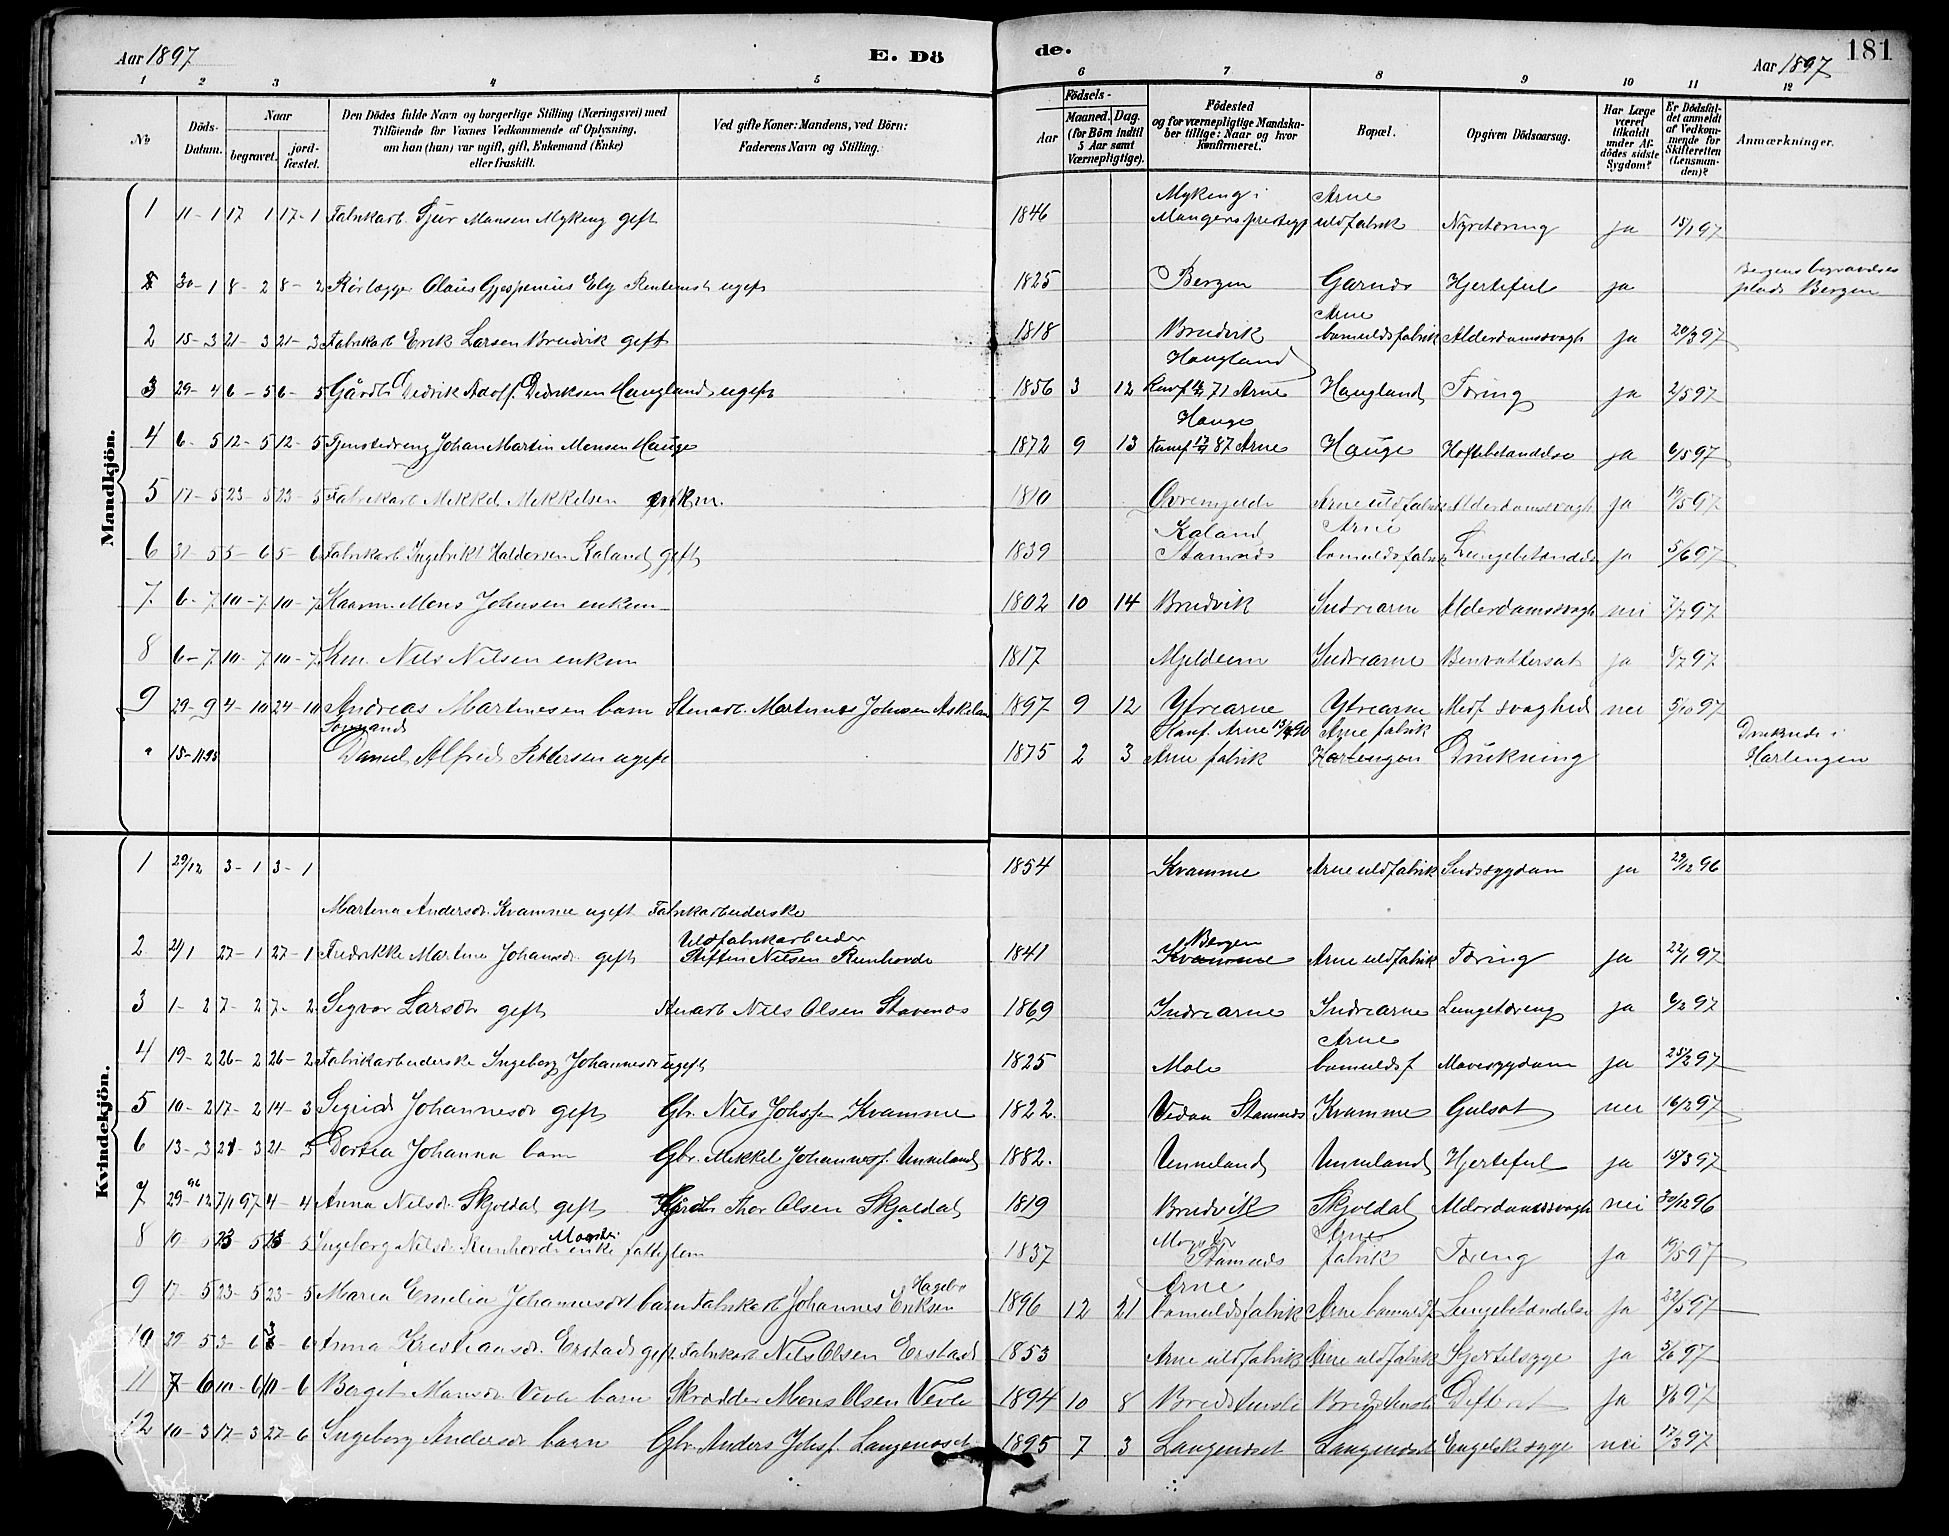 Aar 1897 E. Dö
de. Aar 1897 181
1 2 3 4 5 6 7 8 9 10 11 12
No
Döds-Datum.
Naar
begravet.
jord-fæstet.
Den Dödes fulde Navn og borgerlige Stilling (Næringsvei) med
Tilföiende for Voxnes Vedkommende af Oplysning,
om han (hun) var ugift, gift, Enkemand (Enke)
eller fraskilt.
Ved gifte Koner: Mandens, ved Börn:
Faderens Navn og Stilling.
Födsels-
Aar
Maaned. Dag.
(for Börn indtil
5 Aar samt
Værnepligtige).
Födested
og for værnepligtige Mandska-
ber tillige: Naar og hvor
konfirmeret.
Bopæl.
Opgiven Dödsaarsag.
Har Læge
været
tilkaldt
under Af-
dödes sidste
Sygdom?
Er Dödsfal-
det anmeldt
af Vedkom-
mende for
Skifteretten
(Lensman-
den)?
Anmærkninger.
Mandkjön.
1 11-1 17 1 17-1 Fabrikarb. Sjur Monsen Mykeng gift 1846 Mykeng i Mangers prestegj Arne uldfabrik Nyretæring ja 15/1 97
30-1 8-2 8-2 Rörlægger Olaus ugift 1825 Bergen Garnæs Hjertefeil ja Bergens begravelses plads Bergen
2 15-3 21-3 21-3 Fabrikarb Erik Larsen Bruvik gift 1818 Bruvik Arne bomuldsfabrik Alderdomssvagh ja 20/3 97
3 29-4 6-5 6-5 Gårdb Didrik Adolf Didriksen Haugland ugift 1856 3 12 Haugland Konf 71 Arne Haugland Tæring ja 2/5 97
4 6-5 12-5 12-5 Tjenstedreng Johan Martin Monsen Hauge 1872 9 13 Hauge Konf 87 Arne Hauge Hoftebetændelse ja 6/5 97
5 17-5 23-5 23-5 Fabrikarb Mikkel Mikkelsen enkem. 1810 Arne uldfabrik Alderdomssvagh ja 19/5 97
6 31-5 5-6 5-6 Fabrikarb Ingebrikt Haldorsen Kaland gift 1839 Kaland Stamnæs Arne bomuldsfabrik Lungebetændelse ja 5/6 97
7. 6-7 10-7 10-7 Kaarm. Mons Johnsen enkem 1802 10 14 Bruvik Indrearne Alderdomssvagh nei 7/7 97
8 6-7 10-7 10-7 Nils Nilsen enkem 1817 Mjeldeim Indrearne Benvattersot ja 8/7 97
9 29-9 4-10 24-10 Andreas Martinesen barn Stenarb. Martinus Johnsen Askeland 1897 9 12 Ytrearne Ytrearne Medf svaghed nei 5/10 97
" 15-11 95 Sömands Daniel Alfred Pettersen ugift 1875 2 3 Konf. Arne 90 Arne fabrik Arne fabrik Harlingen Drukning Druknede i Harlingen
Kvindekjön.
1 29/12 3-1 3-1 1854 Kvamme Arne uldfabrik ja 29/12 96
Martina Andersdr. Kvamme ugift Fabrikarbeiderske
2 21/1 27-1 27-1 Fredrikke Martine Johansdr. gift Uldfabrikarbeider Steffen Nilsen Runhovde 1841 Bergen Kvamme Arne uldfabrik Tæring ja 22/1 97
3 1-2 7-2 7-2 Sigvor Larsdr gift Stenarb Nils Olsen Stavenæs 1869 Indrearne Indrearne Lungetæring ja 6/2 97
4 19-2 26-2 26-2 Fabrikarbeiderske Ingeborg Johannesdr ugift 1825 Mole Arne bomuldsf Mavesygdom ja 25/2 97
5 10-2 17-2 14-3 Sigrid Johannesdr gift Gbr. Nils Johsf Kvamme 1822. Vedaa Stamnæs Kvamme Gulsot nei 16/2 97
6 13-3 21-3 21-3 Dortea Johanna barn Gbr. Mikkel Johannesf. Unneland 1882. Unneland Unneland Hjertefeil ja 15/3 97
7 29-12 96 7/1 97 4-4 Anna Nilsdr. Skjoldal gift Thor Olsen Skjoldal 1819 Bruvik Skjoldal Alderdomssvagh nei 30/12 96
8 19-5 23-5 23-5 Ingeborg Nilsdr. Runhovde enke fattiglem 1837 Stamnæs Arne fabrik Tæring ja 19/5 97
9 17-5 23-5 23-5 Maria Emilia Johannesdr barn Fabrikarb Johannes Eriksen Hagebø 1896 12 21 Arne bomuldsfabrik Arne bomuldsf Lungebetændelse ja 22/5 97
10 29-5 3-6 3-6 Anna Kristiansdr. Erstad gift Fabrikarb Nils Olsen Erstad 1853 Arne uldfabrik Arne uldfabrik ja 3/6 97
11 7-6 10-6 10-6 Berget Monsdr Vevle barn Skrædder Mons Olsen Vevle 1894 10 8 ja 8/6 97
12 10-3 17-3 27-6 Ingeborg Andersdr barn Gbr. Anders Johsf. Langenæset 1895 7 3 Langenæset Langenæset Engelsk syge nei 17/3 97